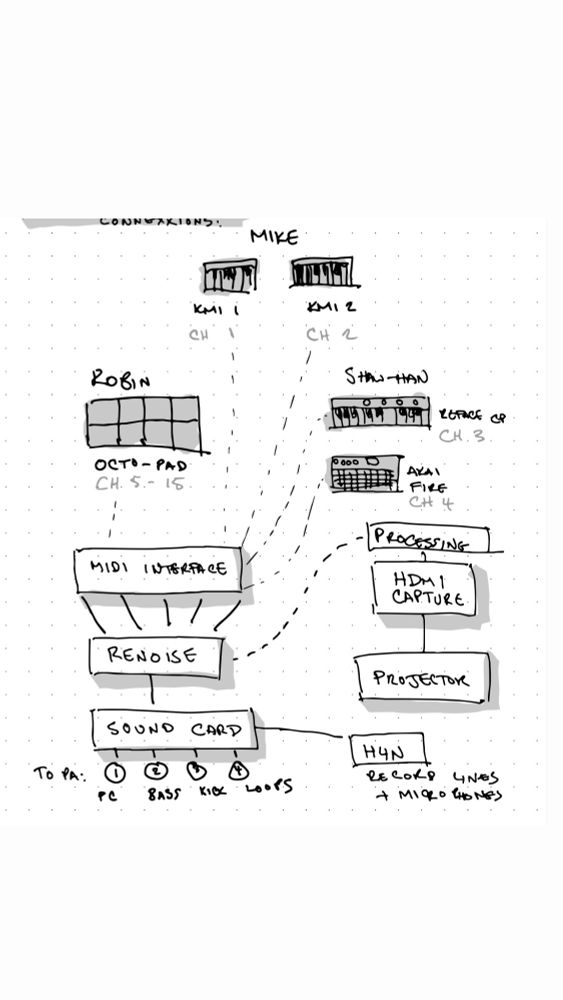 CONNEXXIONS:
MIKE
KMI 1
CH 1
KMI 2
CH 2
ROBIN
OCTO-PAD
CH. 5 - 15
SHAN-HAN
REFACE CP
CH. 3
AKAI
FIRE
CH 4
MIDI INTERFACE
PROCESSING
HDMI
CAPTURE
RENOISE
PROJECTOR
SOUND CARD
H4N
RECORD LINES
+ MICROPHONES
TO PA: 1 2 3 4
PC BASS KICK LOOPS